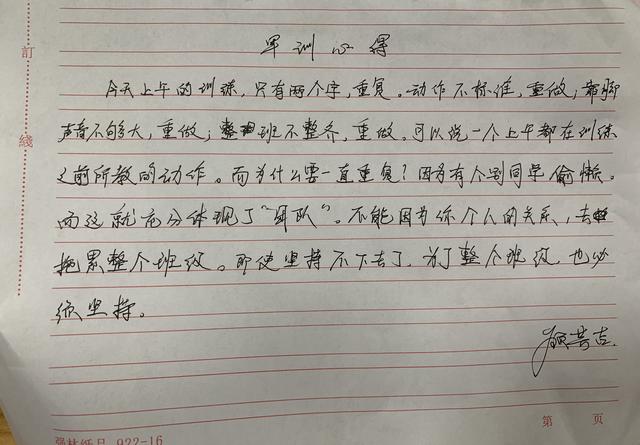 军训心得
今天上午的训练,只有两个字,重复。动作不标准,重做;靠脚
声音不够大,重做;整班不整齐,重做。可以说一个上午都在训练
之前所教的动作。而为什么要一直重复?因为有个别同学偷懒。
而这就充分体现了“军队”。不能因为你个人的关系,去
拖累整个班级。即使坚持不下去了,为了整个班级,也必
须坚持。
訂
線
第 页
922-16